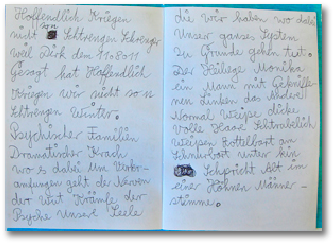 Hoffendlich Kriegen
wir
nicht so Schtrengen Schrenger
weil Dirk dem 11 80 11
Gesagt hat Hoffendlich
Kriegen Wir nicht so n
Schtrengen Winter.
Psychischer Familien
Dramatischer Krach
wo es dabei Um Verbr-
andungen geht der Nerven
der Wut Krämfe der
Psyche Unsere Seele
die wir haben wo dabei
Unser ganses System
Zu Grunde gehen tut.
Der Heilege Monika
ein Mann mit
nen Linken das Andere
Normal Weiße dicke
Volle Haare
Weißen Zottelbart am
Schnurbart unter kin
Schpricht Alt im
einer Höhnen Männer-
stimme.